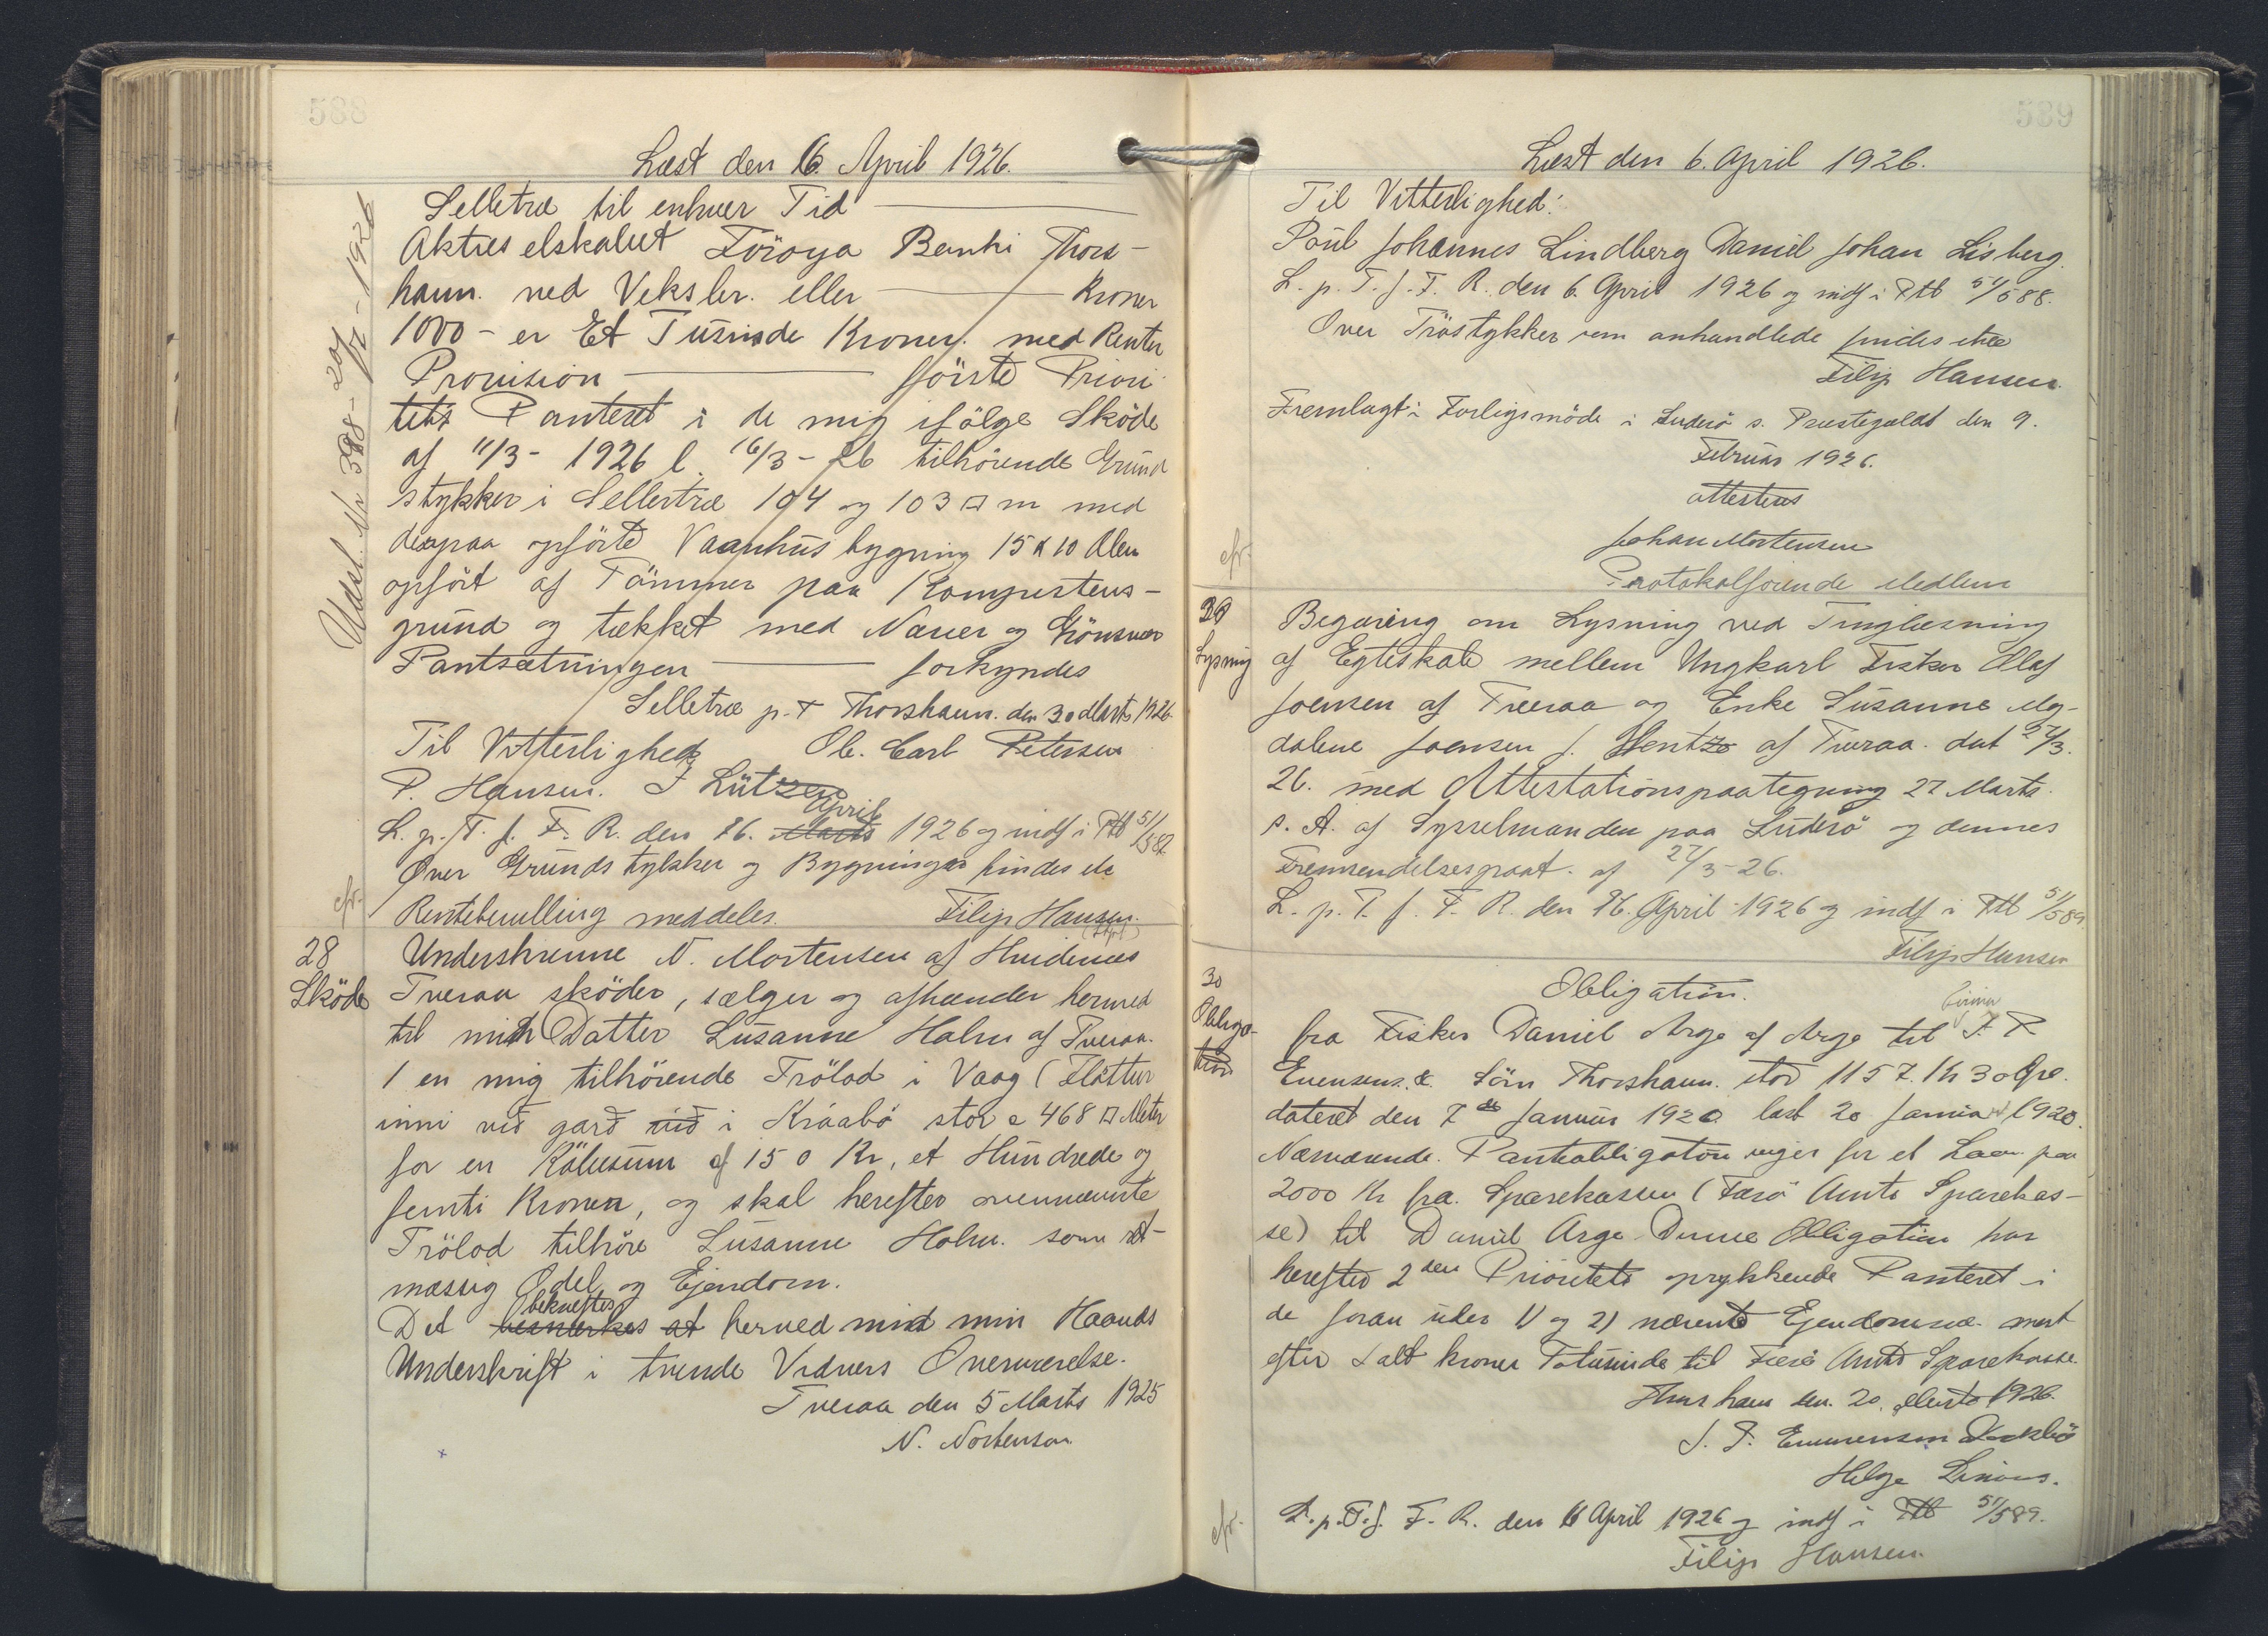 588
Læst den 6. April 1926.
Selletræ til enhver Tid
Aktieselskabet Föroya Banki Thors-
havn. ved Veksler. eller Kroner
1000 - er Et Tusinde Kroner. med Renter
Provision förste Priori
tets Panteret i de mig ifölge Sköde
af 11/3 - 1926 l. 16/3 - 26 tilhörende Grund
stykker i Selletræ 104 og 103 □ m med
derpaa opförte Vaanhusbygning 15 x 10 Alen
opfört af Tömmer paa Kampestens-
grund og tækket med Næver og Grönsvær
Pantsætningen forkyndes
Selletræ p.t Thorshavn. den 30 Marts 1926.
Til Vitterlighed Ol. Carl Petersen
P. Hansen. J Lützen
April
L. p. T. f. F. R. den 6. Marts 1926 og indf i Ptb 51/587
Over Grundstykker og Bygninger findes ei
cfr. Rentebevilling meddeles. Filip Hansen.
Udsl. Nr 398 - 20/12 - 1926
28
Sköde
Underskrevne N. Mortensen af Hvidenes
Tveraa sköder, sælger og afhænder hermed
til min Datter Susanne Holm af Tveraa.
1 en mig tilhörende Trölod i Vaag (Flöttur
inni við garð við i Kráabö stor c 468 □ Meter
for en Köbesum af 150 Kr, et Hundrede og
femti Kroner, og skal herefter ovennævnte
Trölod tilhöre Susanne Holm. som ret-
mæssig Odel og Ejendom.
bekræftes
Det bemærkes at herved med min Haands
Underskrift i tvende Vidners Overværelse.
Tveraa den 5 Marts 1925
N. Mortensen
589
Læst den 6. April 1926.
Til Vitterlighed:
Poul Johannes Lindberg Daniel Johan Lisberg.
L. p. T. f. F. R. den 6. April 1926 og indf i Ptb 51/588.
Over Tröstykker som anhandlede findes ikke
Filip Hansen.
Fremlagt i Forligsmöde i Suderö s. Præstegæld den 9.
Februar 1926.
attesteres
Johan Mortensen
cfr.
Protokolförende Medlem
29
Lysning
Begæring om Lysning ved Tinglæsning
af Egteskab mellem Ungkarl Fisker Olaf
Joensen af Tveraa og Enke Susanne Mag-
dalene Joensen f. Hentze af Tveraa. dat 27/3.
26. med Attestationspaategning 27 Marts.
s. A. af Sysselmanden paa Suderö og dennes
Fremsendelsespaat. af 27/3 - 26.
L. p. T. f. F. R. den 6. April 1926 og indf i Ptb 51/589
Filip Hansen
30
Obliga-
tion
Obligation.
Firma
fra Fisker Daniel Arge af Arge til
Evensens. & Sön Thorshavn. stor 1157. Kr 30 Öre.
dateret den 7de Januar 1920 læst 20 Januar 1920.
Nærværende Panteobligation viger for et Laan paa
2000 Kr fra. Sparekassen (Færö Amts Sparekas-
se) til Daniel Arge. Denne Obligation har
herefter 2den Prioritets oprykkende Panteret i
de foran under 1) og 2) nævnte Ejendomme næst
efter ialt kroner Totusinde til Færö Amts Sparekasse.
Thorshavn den. 20. Marts 1926.
Helge
cfr. L. p. T. f. F. R. den 6 April 1926 og indf i Ptb 51/589.
Filip Hansen.